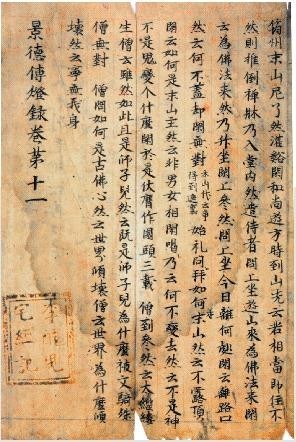 筠州末山尼了然灌谿閑和尚遊方時到山先云若相當即住不
然則推倒禪牀乃入堂内然遣侍者問上座遊山來為佛法來閑
云為佛法來然乃升座閑上參然問上座今日離何處閑云離路口
然云何不蓋却閑無對末山代云爭得到遮裏始礼拜問如何是末山然云不露頂
閑云如何是末山主然云非男女相閑喝乃云何不變去然云不是神
不是鬼變个什麼閑於是伏膺作園頭三載 僧到參然云太繿縷
生僧云雖然如此且是師子兒然云既是師子兒為什麼被文殊騎
僧無對 僧問如何是古佛心然云世界傾壞僧云世界為什麼傾
壞然云寧無我身
景德傳燈錄卷第十一